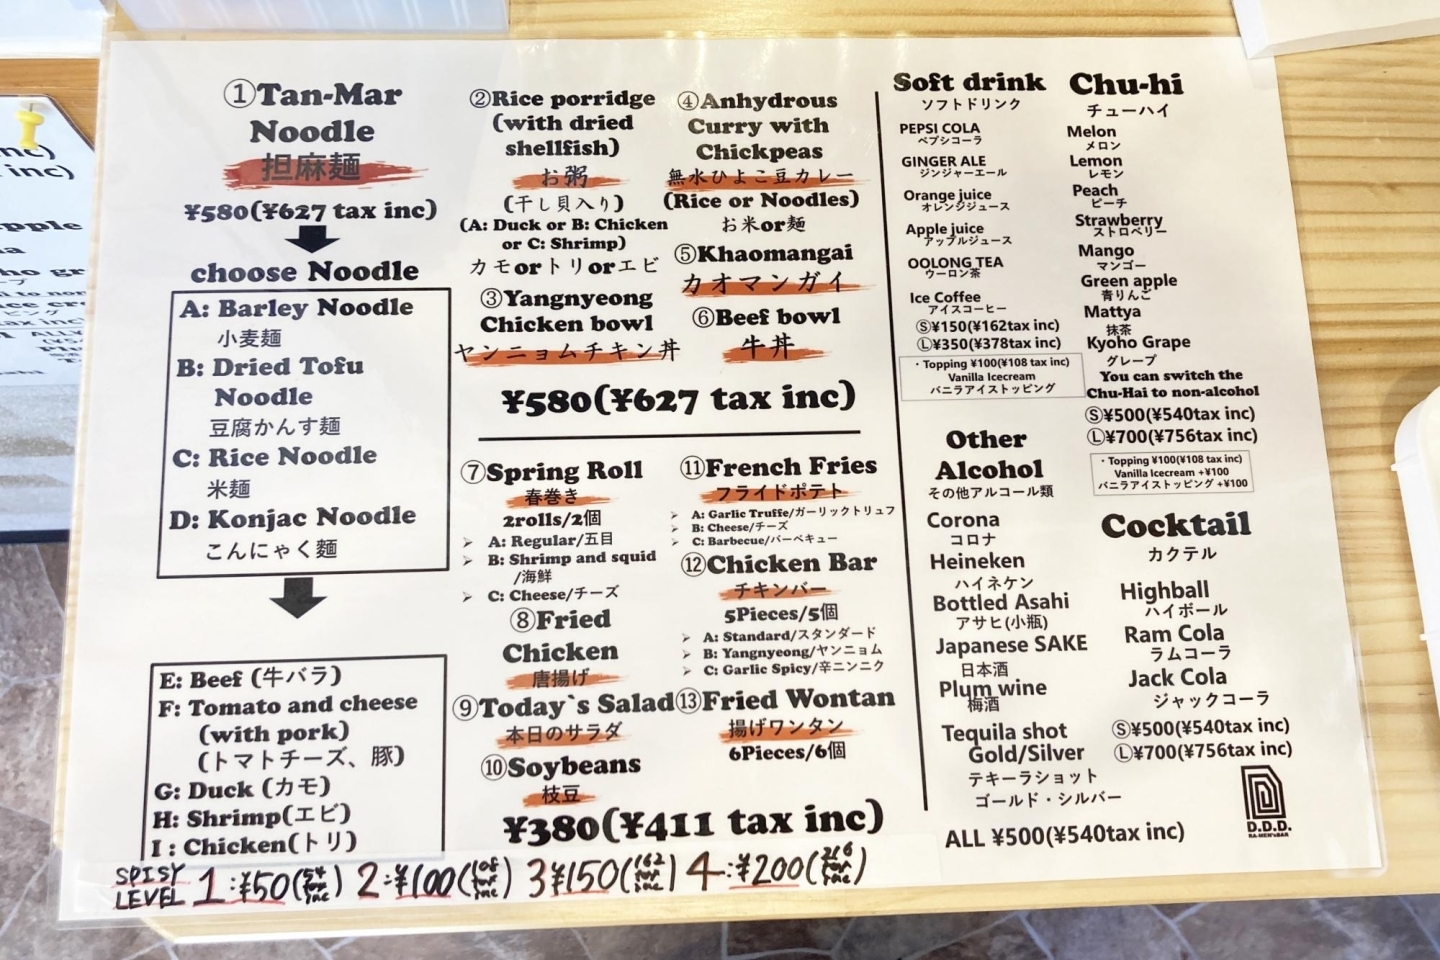 ①Tan-Mar
Noodle
担麻麺
¥580(¥627 tax inc)
choose Noodle
A: Barley Noodle
小麦麺
B: Dried Tofu
Noodle
豆腐かんす麺
C: Rice Noodle
米麺
D: Konjac Noodle
こんにゃく麺
E: Beef (牛バラ)
F: Tomato and cheese
(with pork)
(トマトチーズ、豚)
G: Duck (カモ)
H: Shrimp(エビ)
I : Chicken(トリ)
②Rice porridge
(with dried
shellfish)
お粥
(干し貝入り)
(A: Duck or B: Chicken
or C: Shrimp)
カモorトリorエビ
③Yangnyeong
Chicken bowl
ヤンニョムチキン丼
④Anhydrous
Curry with
Chickpeas
無水ひよこ豆カレー
(Rice or Noodles)
お米or麺
⑤Khaomangai
カオマンガイ
⑥Beef bowl
牛丼
¥580(¥627 tax inc)
⑦Spring Roll
春巻き
2rolls/2個
➢ A: Regular/五目
➢ B: Shrimp and squid
/海鮮
➢ C: Cheese/チーズ
⑧Fried
Chicken
唐揚げ
⑨Today`s Salad
本日のサラダ
⑩Soybeans
枝豆
⑪French Fries
フライドポテト
➢ A: Garlic Truffe/ガーリックトリュフ
➢ B: Cheese/チーズ
➢ C: Barbecue/バーベキュー
⑫Chicken Bar
チキンバー
5Pieces/5個
➢ A: Standard/スタンダード
➢ B: Yangnyeong/ヤンニョム
➢ C: Garlic Spicy/辛ニンニク
⑬Fried Wontan
揚げワンタン
6Pieces/6個
¥380(¥411 tax inc)
SPISY
LEVEL 1:¥50(54 tax inc) 2:¥100(108 tax inc) 3¥150(162 tax inc) 4:¥200(216 tax inc)
Soft drink
ソフトドリンク
PEPSI COLA
ペプシコーラ
GINGER ALE
ジンジャーエール
Orange juice
オレンジジュース
Apple juice
アップルジュース
OOLONG TEA
ウーロン茶
Ice Coffee
アイスコーヒー
Ⓢ¥150(¥162tax inc)
Ⓛ¥350(¥378tax inc)
・Topping ¥100(¥108 tax inc)
Vanilla Icecream
バニラアイストッピング
Other
Alcohol
その他アルコール類
Corona
コロナ
Heineken
ハイネケン
Bottled Asahi
アサヒ(小瓶)
Japanese SAKE
日本酒
Plum wine
梅酒
Tequila shot
Gold/Silver
テキーラショット
ゴールド・シルバー
ALL ¥500(¥540tax inc)
Chu-hi
チューハイ
Melon
メロン
Lemon
レモン
Peach
ピーチ
Strawberry
ストロベリー
Mango
マンゴー
Green apple
青りんご
Mattya
抹茶
Kyoho Grape
グレープ
You can switch the
Chu-Hai to non-alcohol
Ⓢ¥500(¥540tax inc)
Ⓛ¥700(¥756tax inc)
・Topping ¥100(¥108 tax inc)
Vanilla Icecream +¥100
バニラアイストッピング +¥100
Cocktail
カクテル
Highball
ハイボール
Ram Cola
ラムコーラ
Jack Cola
ジャックコーラ
Ⓢ¥500(¥540tax inc)
Ⓛ¥700(¥756tax inc)
D.D.D.
RA-MEN'sBAR